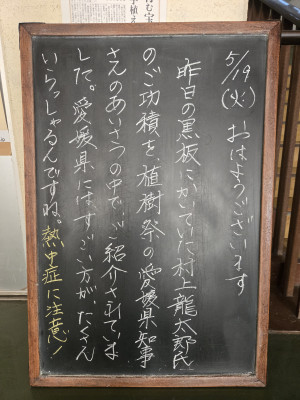 5/19(火) おはようございます
昨日の黒板にかいていた村上龍太郎氏
のご功積を植樹祭の愛媛県知事
さんのあいさつの中でご紹介されていま
した。愛媛県にはすごい方が、たくさん
いらっしゃるんですね。熱中症に注意！